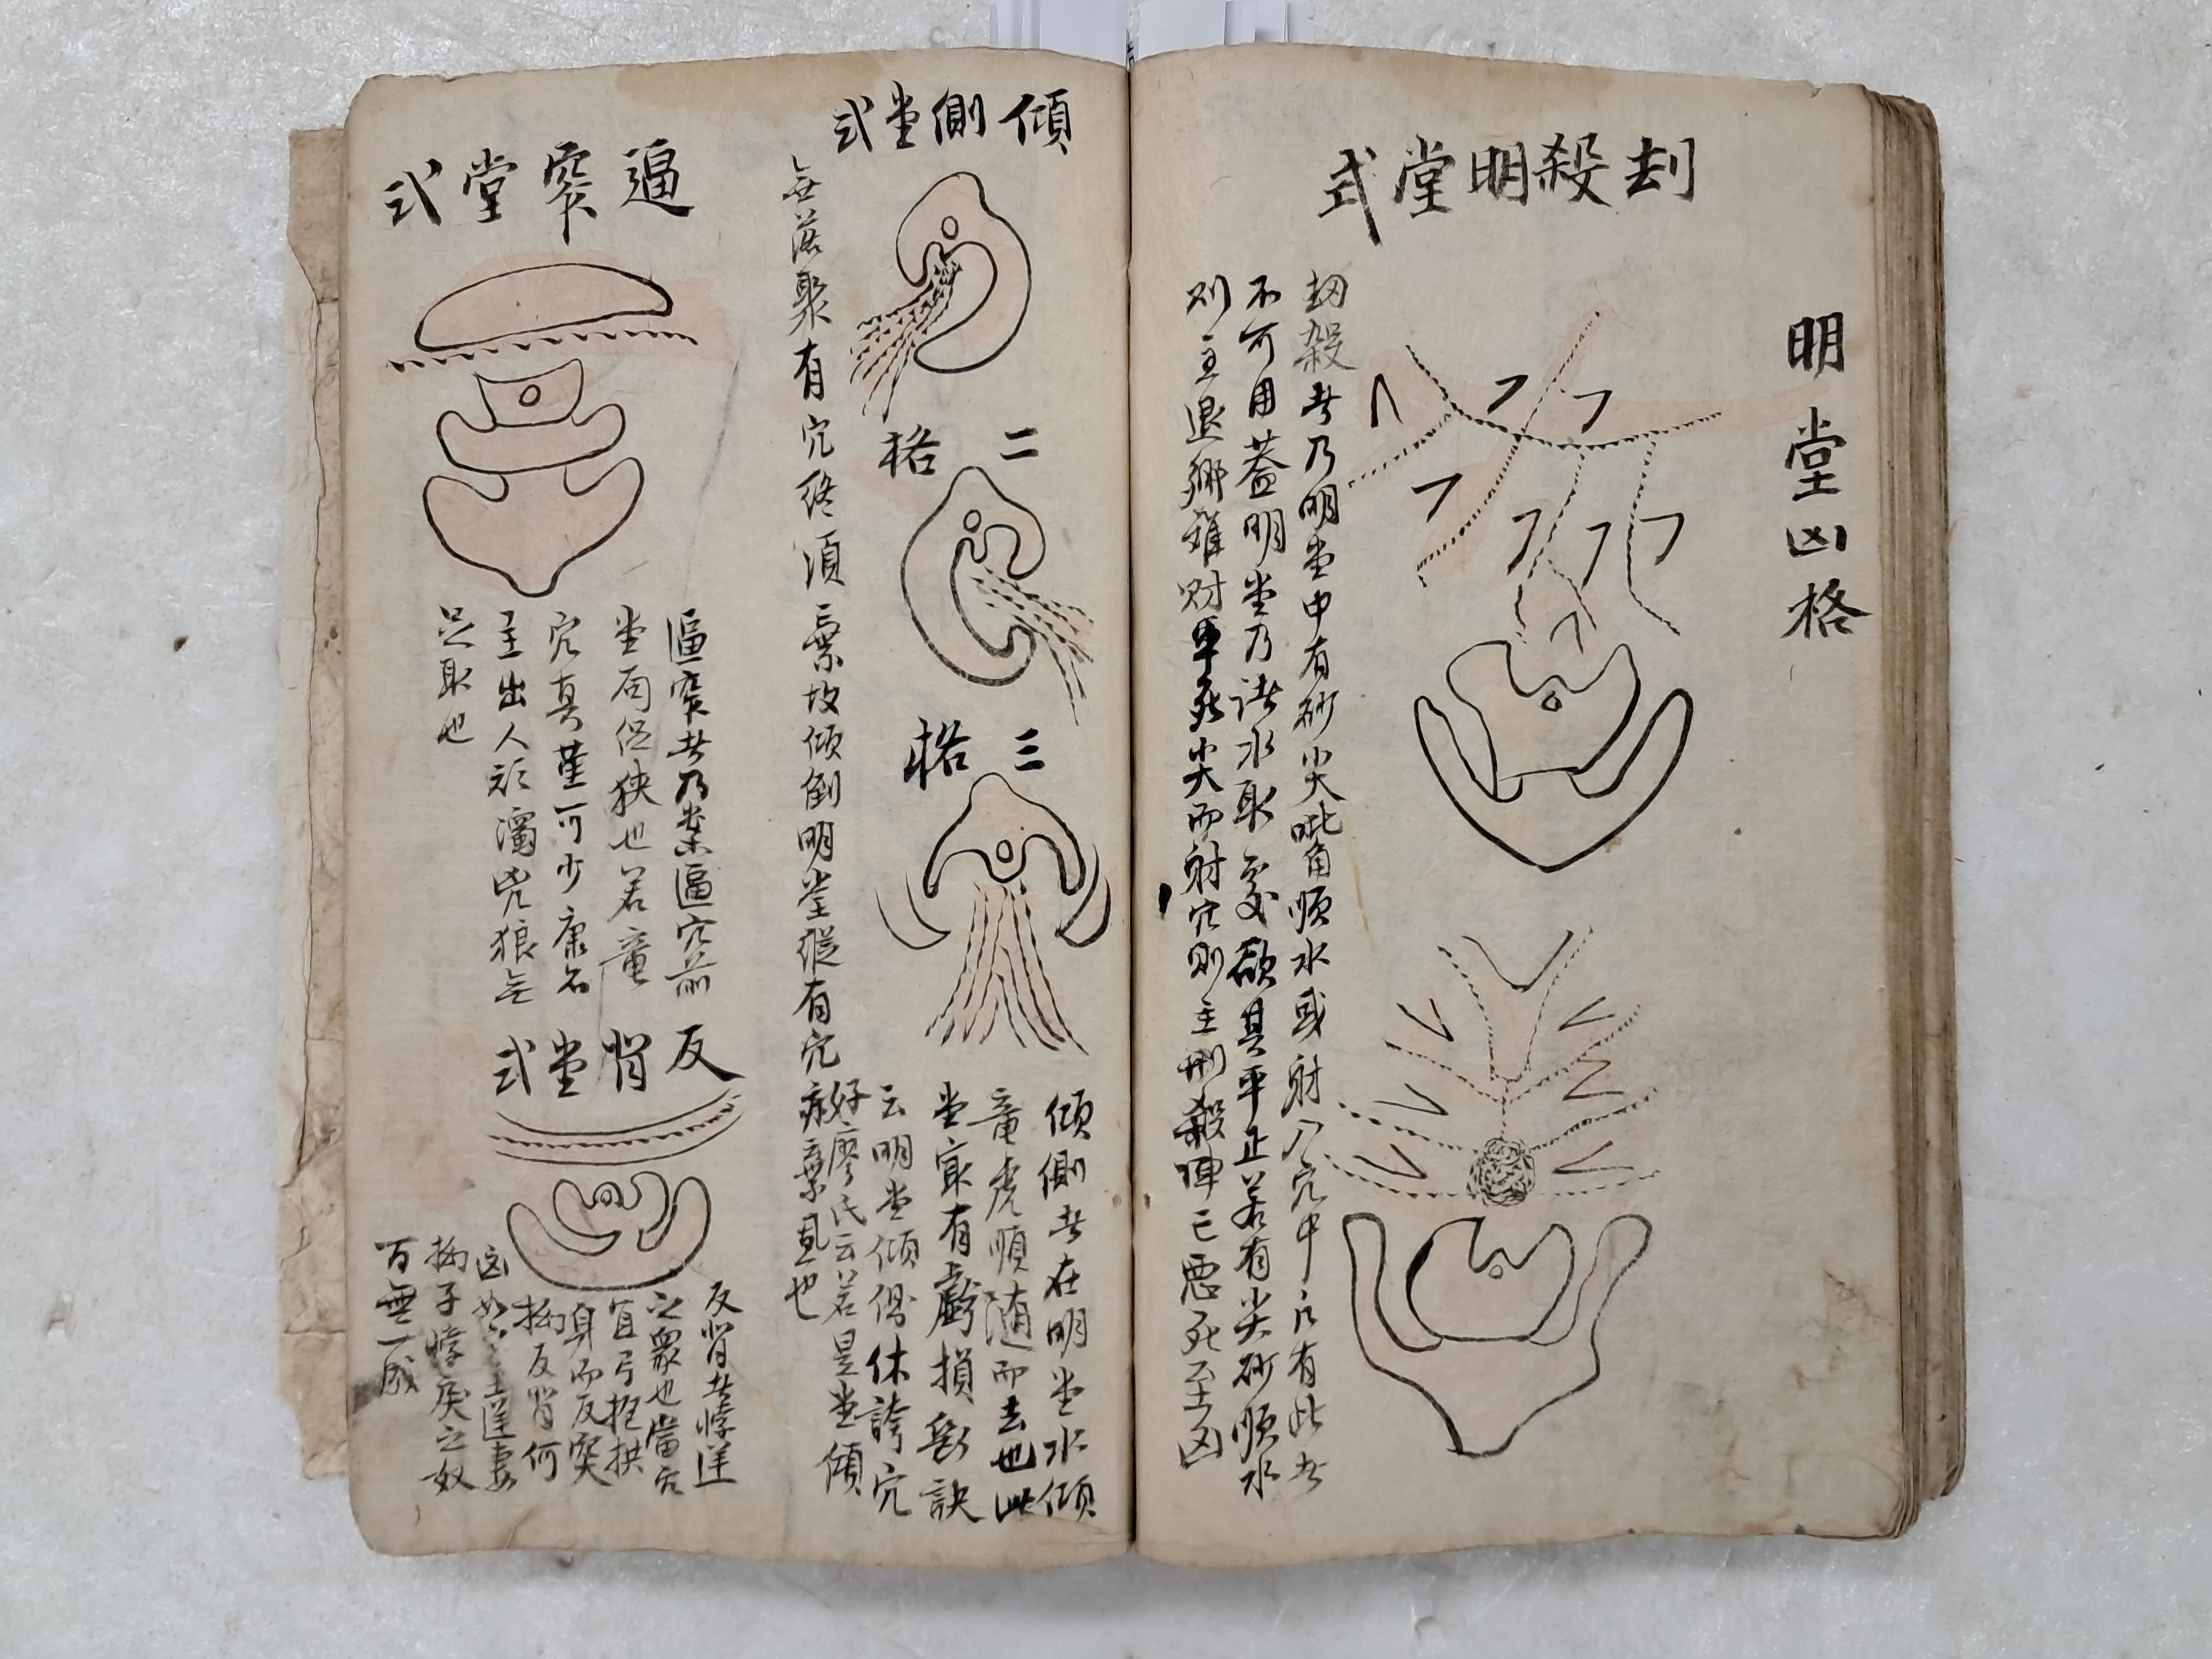 明堂凶格
刦殺明堂式
刼殺者乃明堂中有砂尖嘴角順水或射入穴中凡有此者
不可用蓋明堂乃諸水取聚處欲其平正若有尖砂順水
则主退鄉離财軍死尖而射穴則主刑殺陣亡惡死至凶
傾側堂式
二格
三格
傾側者在明堂水傾
竜虎順随而去也此
堂最有虧損
訣
云明堂傾側休誇穴
好廖氏云若是堂傾
無落聚有穴终須棄故倾倒明堂縦有穴
棄真也
逼窄堂式
逼窄者乃案逼穴前
堂局促狹也若竜
穴真堇可少康名
主出人頑濁兇狠無
足取也
反背堂式
反背者悖逆
之象也當穴
宜弓抱拱
身而反突
拗反背何
凶如之主逆妻
拗子悖戾之奴
百無一成